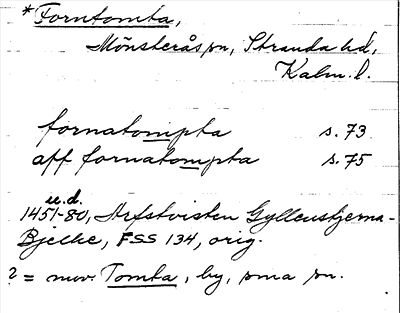 *Forntomta,
Mönsterås sn, Stranda hd,
Kalm. l.
fornatompta s. 73
aff fornatompta s. 75
u.d.
1451-80, Arfstvisten Gyllenstjerna-
Bjelke, FSS 134, orig.
? = nuv. Tomta, by, sma sn.